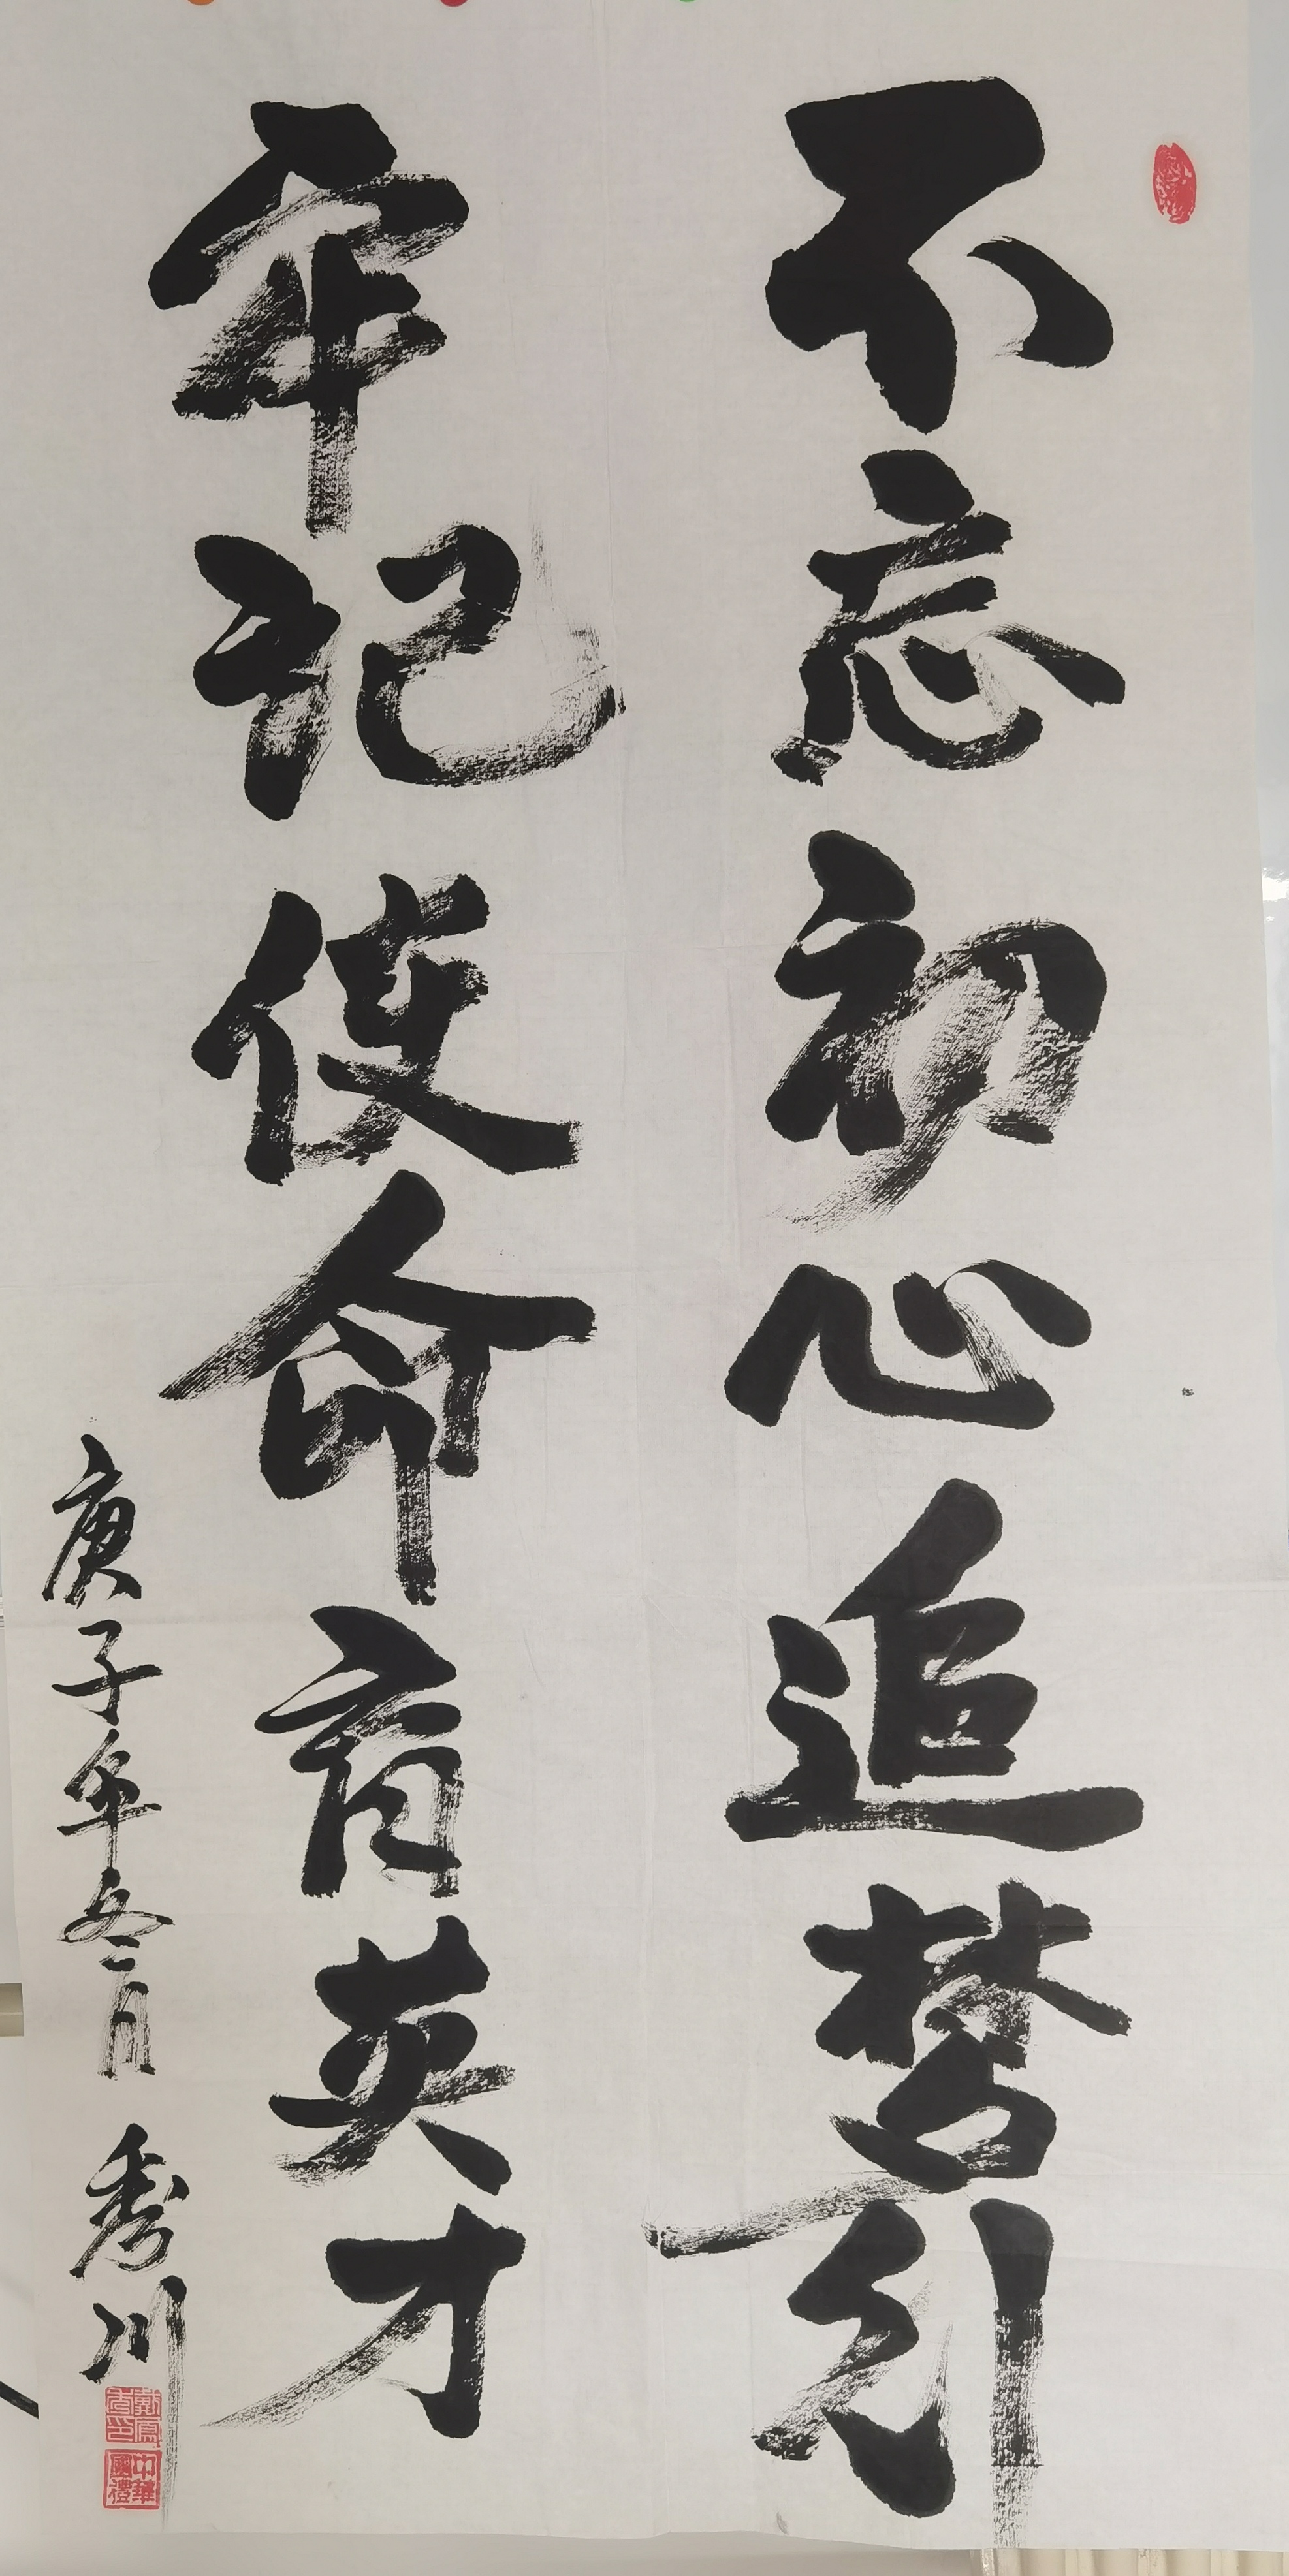 不忘初心追梦引
牢记使命育英才
庚子年冬月 秀川
中華國禮